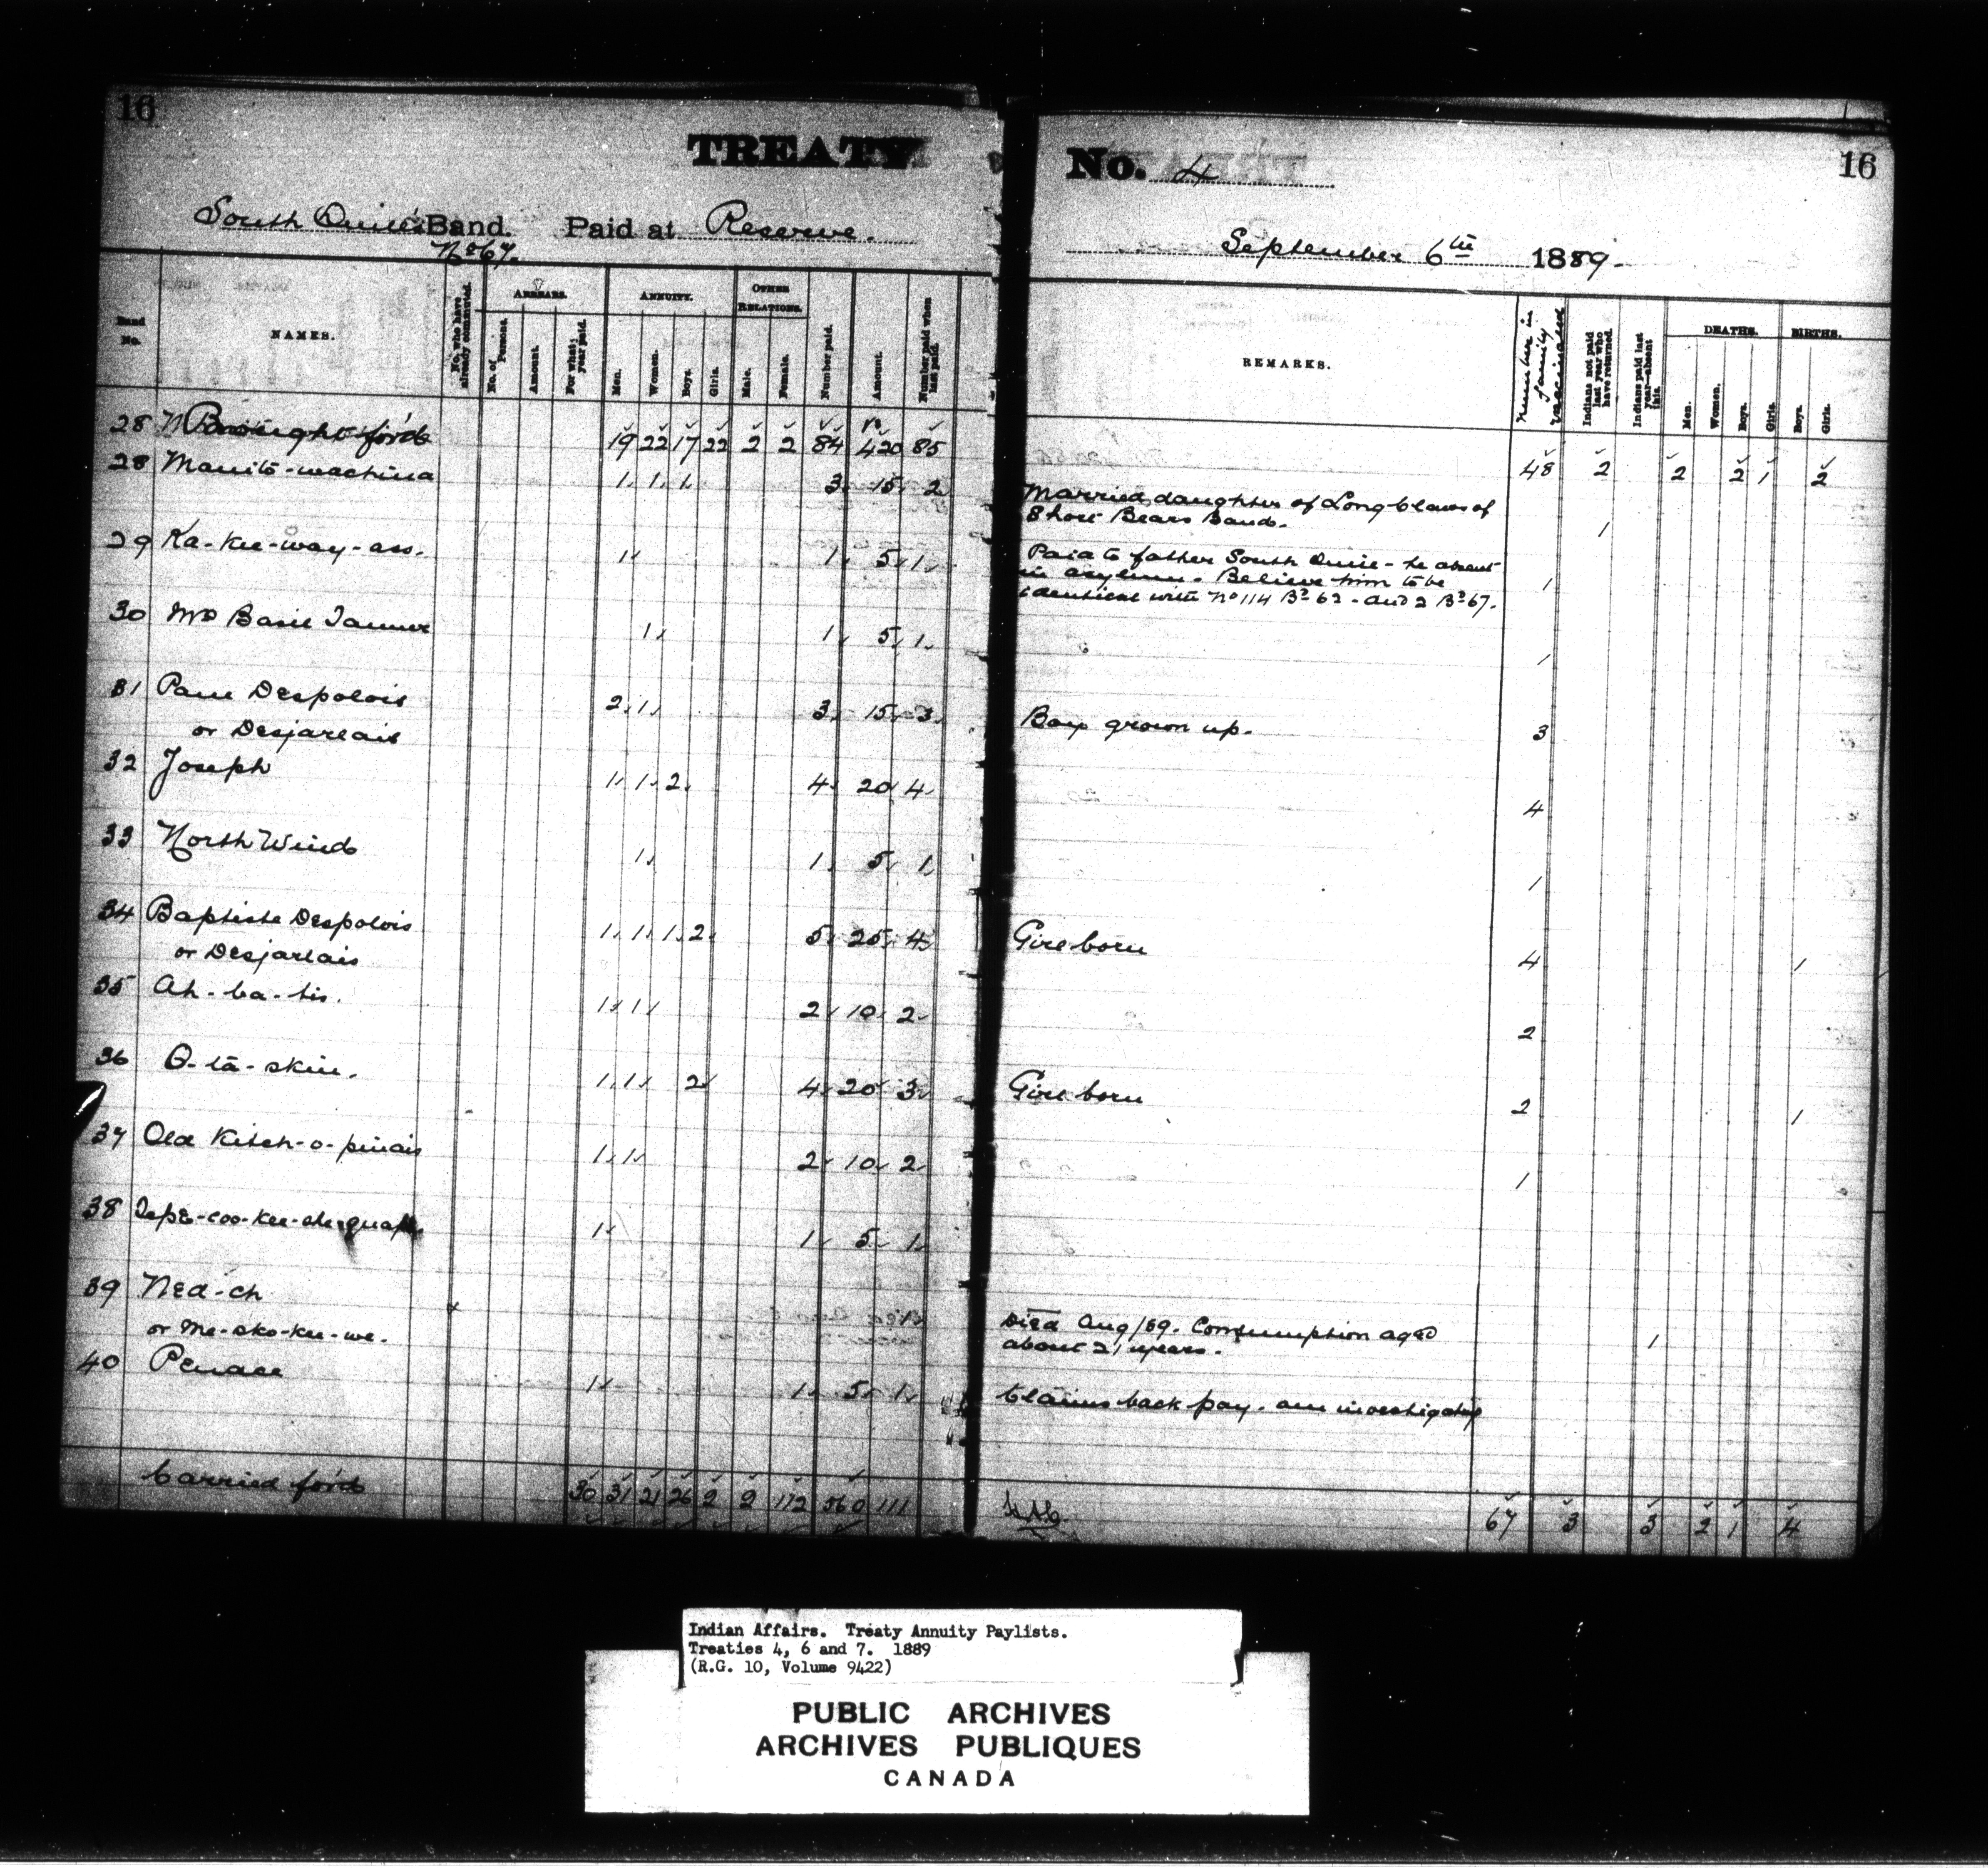 16
TREATY
No. 4
16
South Quill's Band. Paid at Reserve.
No 67.
September 6th 1889.
Band No.
NAMES.
No. who have already commuted.
ARREARS.
No. of Persons.
Amount.
For what year paid.
ANNUITY.
Men.
Women.
Boys.
Girls.
OTHER RELATIONS.
Male.
Female.
Number paid.
Amount.
Number paid when last paid.
REMARKS.
Number in family vaccinated
Indians not paid last year who have returned.
Indians paid last year—absent this.
DEATHS.
Men.
Women.
Boys.
Girls.
BIRTHS.
Boys.
Girls.
28 Brought for'd 19 22 17 22 2 2 84 420 85 48 2 2 2 1 2
28 Manito-wachina 1 1 1 3 15 2 Married daughter of Long Claws of
Short Bears Band. 1
29 Ka-kee-way-ass. 1 1 5 1 Paid to father South Quill - he absent
in asylum. Believe him to be 1
identical with No 114 Bd 62 - and 2 Bd 67.
30 Mrs Basil Tanner 1 1 5 1 1
31 Paul Despolois 2 1 3 15 3 Boy grown up. 3
or Desjarlais
32 Joseph 1 1 2 4 20 4 4
33 North Wind 1 1 5 1 1
34 Baptiste Despolois 1 1 1 2 5 25 4 Girl born 4 1
or Desjarlais
35 Ah-ba-tis. 1 1 2 10 2 2
36 O-tā-skin. 1 1 2 4 20 3 Girl born 2 1
37 Old Kitch-o-pinais 1 1 2 10 2 1
38 1 1 5 1
39 Ned-ch
or Me-sko-kee-we. Died Aug/89. Consumption aged
about 21 years. 1
40 Penace 1 1 5 1 Claims back pay. am investigating
Carried for'd 30 31 21 26 2 2 112 560 111 67 3 3 2 1 4
Indian Affairs. Treaty Annuity Paylists.
Treaties 4, 6 and 7. 1889
(R.G. 10, Volume 9422)
PUBLIC ARCHIVES
ARCHIVES PUBLIQUES
CANADA